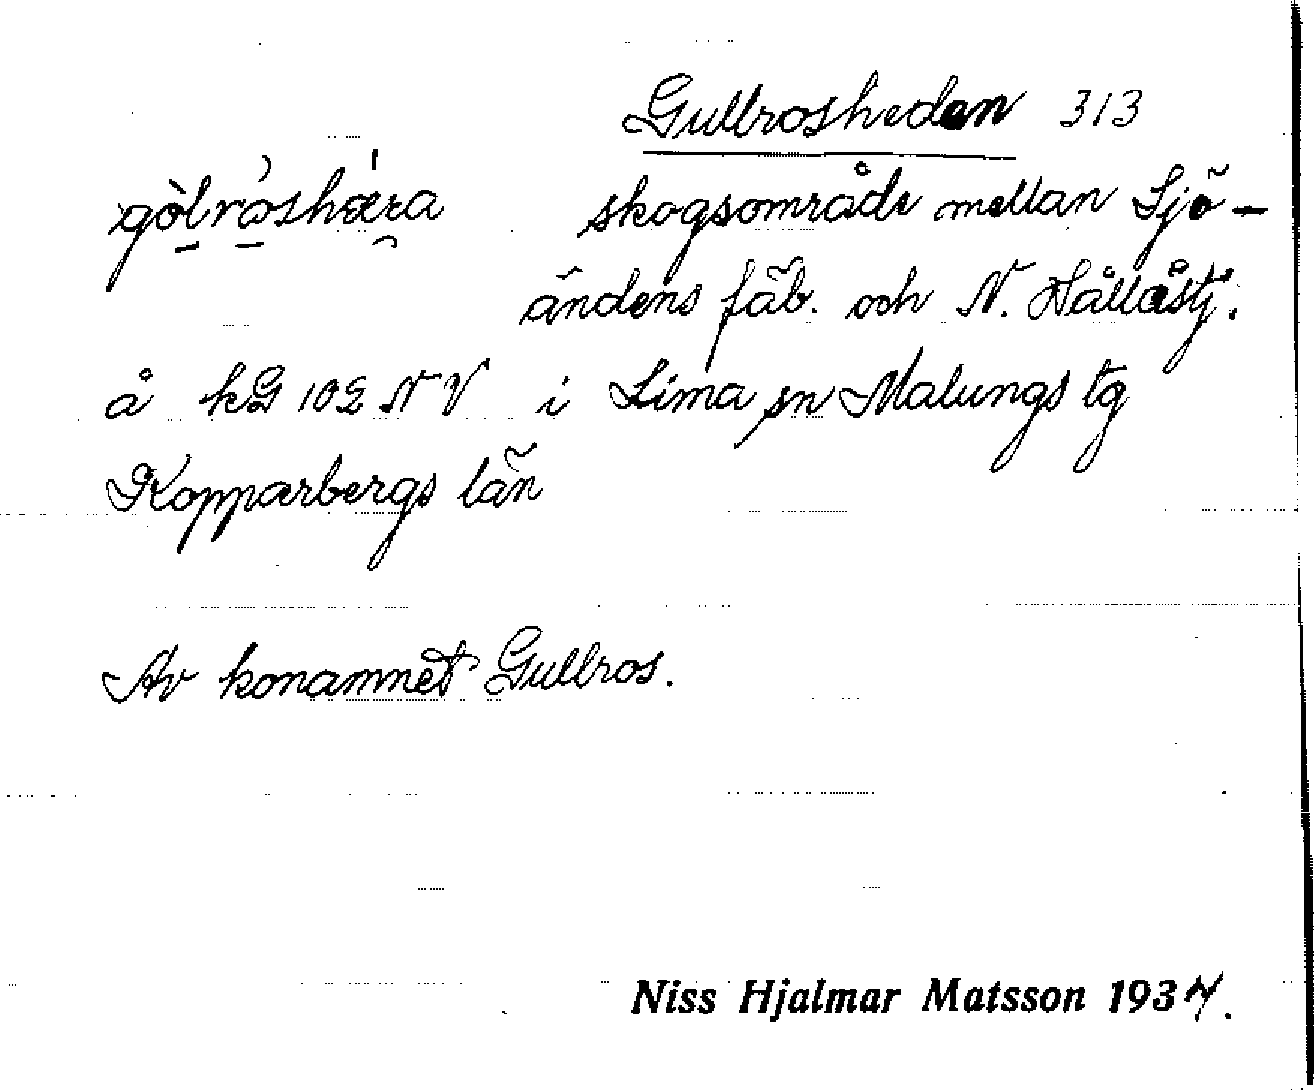 Gullrosheden 313
gòlróshæra skogsområde mellan Sjö-
ändens fäb. och N. Hållåstj.
å kG 102 NV i Lima sn Malungs tg
Kopparbergs län
Av konamnet Gullros.
Niss Hjalmar Matsson 1937.